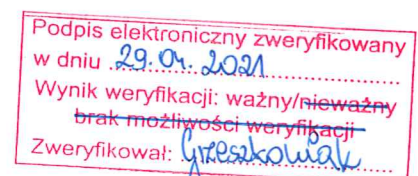 Podpis elektroniczny zweryfikowany
w dniu 29.04.2021
Wynik weryfikacji: ważny/nieważny
brak możliwości weryfikacji
Zweryfikował: Grzeszkowiak